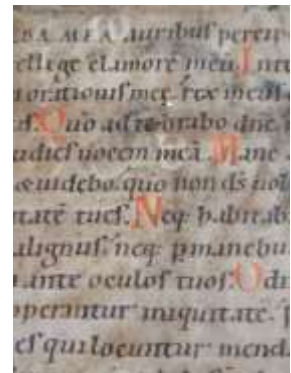 BA MEA auribus percip
ellege clamorē meū. Inte
orationis meę. rex meus
us. Quo ad te orabo dn̄e.
udies uocem meā. Mane
& uidebo. quo non ds̄ uol
itatē tu es. Neq; habitab
alignus. neq; pmanebu
ante oculos tuos. Odi
operantur iniquitatē. p
es qui locuntur mend